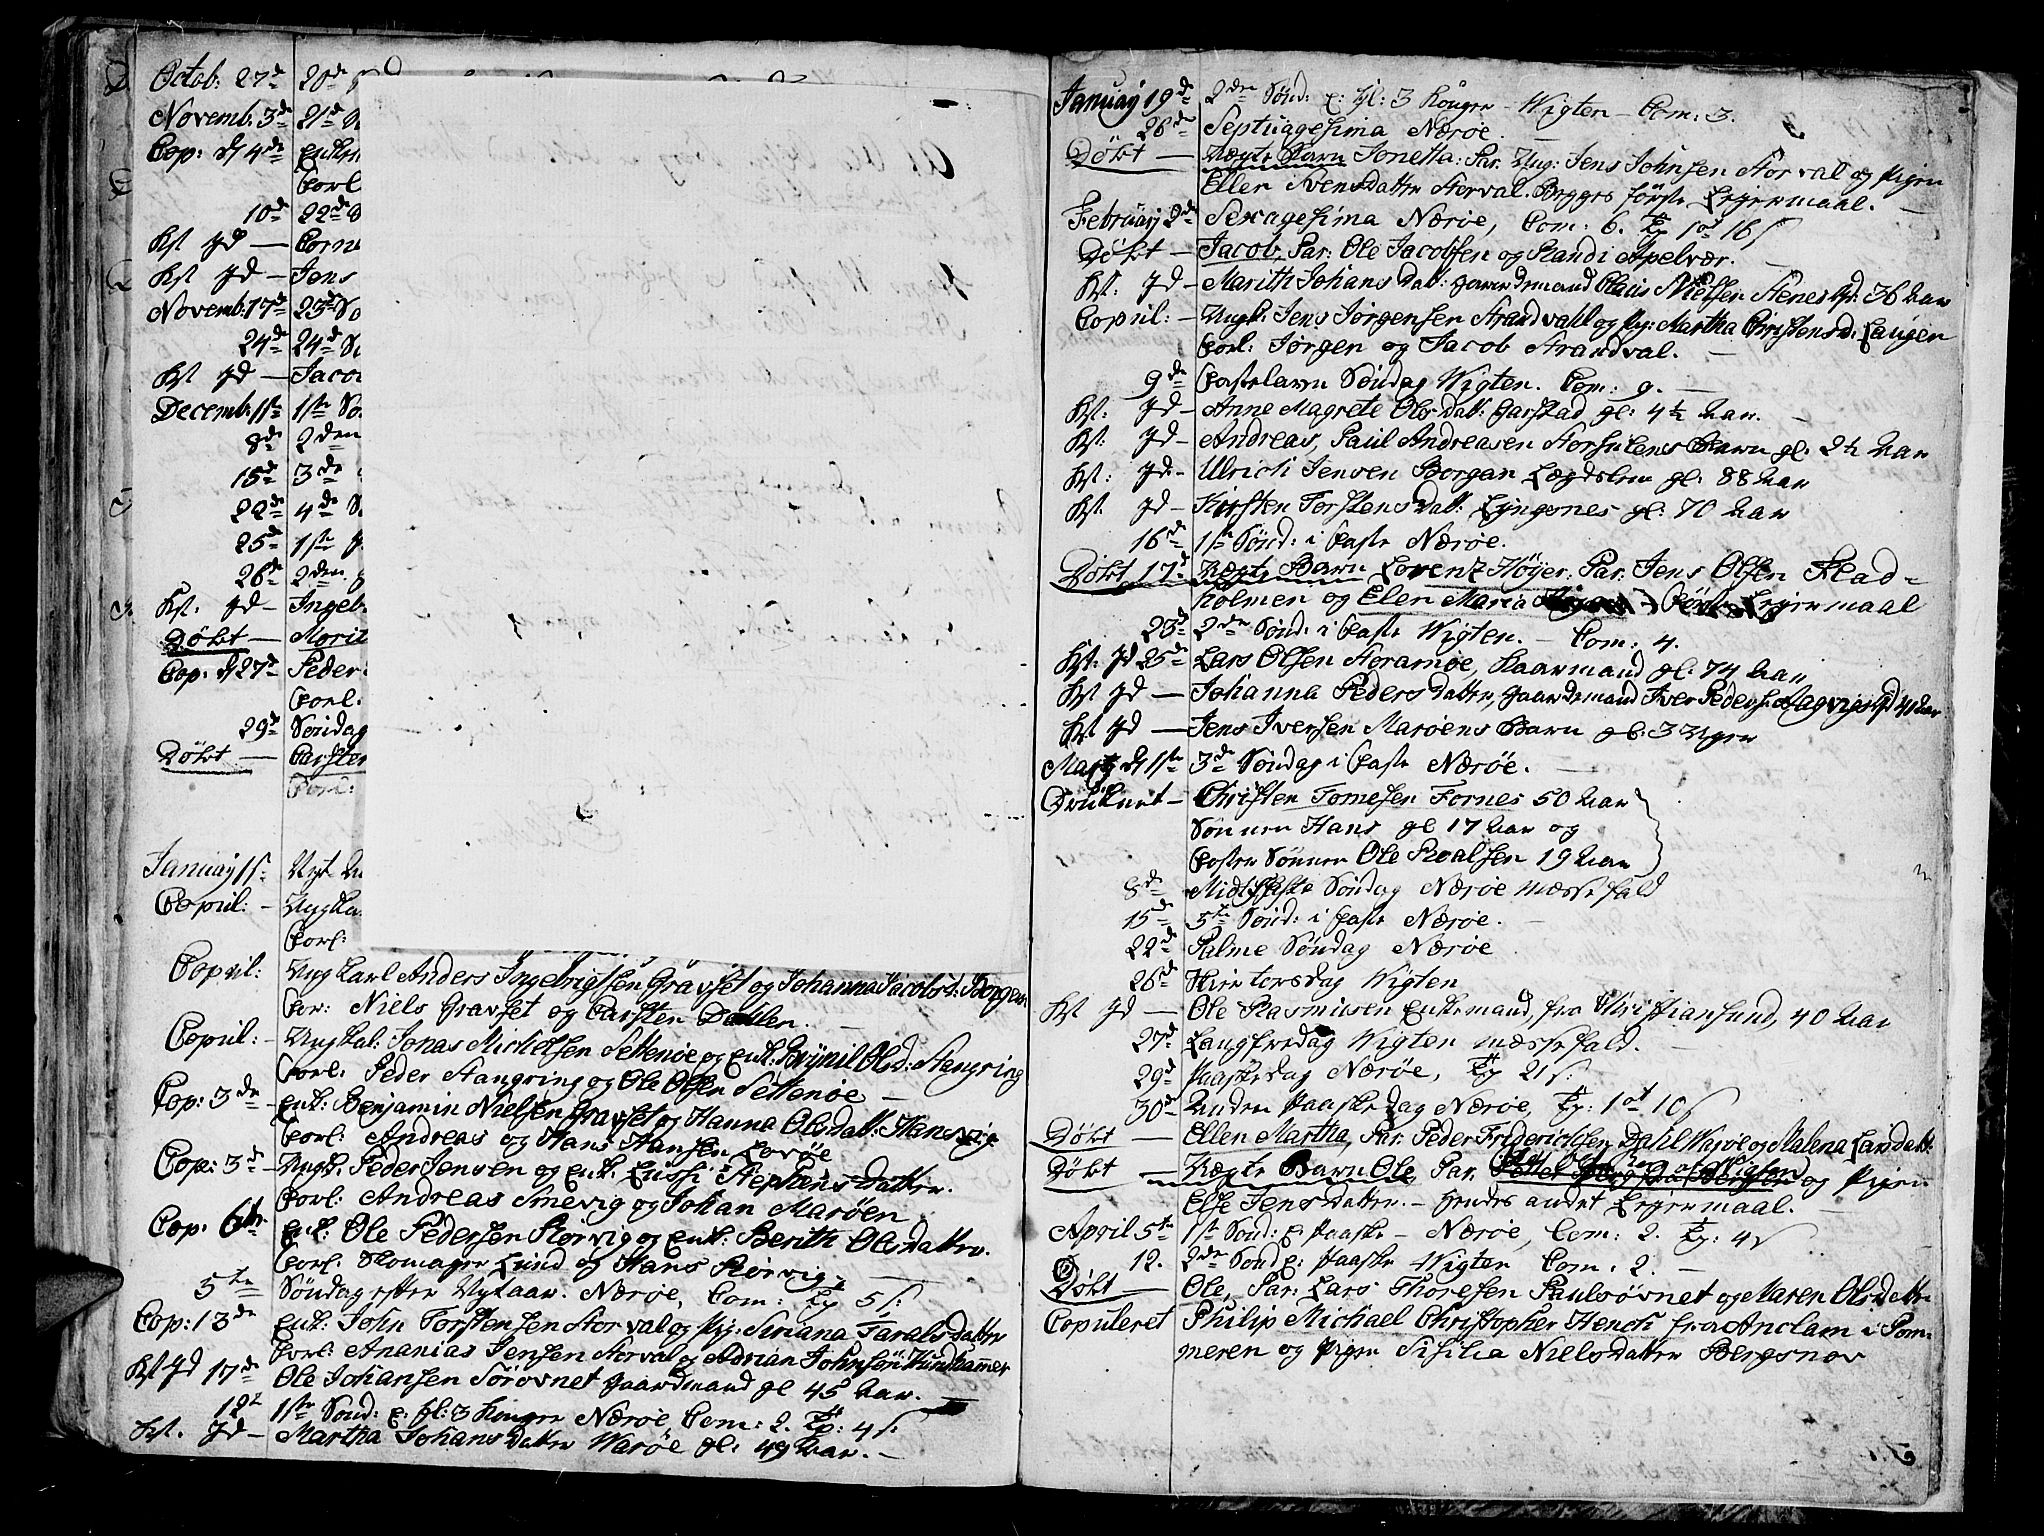 Octob: 27de 20de
Novemb: 3de 21de
Cop: d 4de Enkem
Forl:
10de 22de
Kst Jd — Corne
Kst Jd — Jens
Novemb: 17de 23de So
24de 24de S
Kst Jd — Jaco
Decemb: 1ste 1ste Sø
8de 2den
15de 3de
22de 4de S
25de 1ste
26de 2den
Kst: Jd — Ingeb
Døbt — Morit
Cop: d 27de Peder
Forl:
29de Søndag
Døbt — Carsten
Forl:
January 1ste Nyt
Copul: — Ungka
Forl:
Copul: Ungkarl Anders Ingebrigtsen Gravset og Johanna Jacobsd: Borgen
For: Niels Gravset og Carsten Dahlen.
Copul: — Ungkal: Jonas Michelsen Settenøe og Enk: Brynil Olsd: Stangring
Forl: Peder Stangring og Ole Olsen Settenøe —
Cop: 3de — Enk: Benjamin Nielsen Gravset og Hanna Olsdatt: Hansvig
Forl: Andreas og Hans Hansen Lovøe
Cop: 3de — Ungk. Peder Jensen og Enk: Lussi Stephensdatter.
Forl: Andreas Smevig og Johan Marøen
Cop: 6te Enk: Ole Pedersen Rørvig og Enk: Berith Olsdatter.
Forl: Skomager Lund og Hans Rørvig.
5te Søndag efter Nytaar. Nærøe, Com: Tp 5 s:
Cop: 13de Enk: John Torstensen Storval og Pig: Siriana Taralsdatter
Forl: Ananias Jensen Storval og Adrian Johnsen
Kst Jd 17de Ole Johansen Sørøvnet gaardmand gl 45 Aar.
12te 1ste Sønd: e: hl: 3 Konger Nærøe Com: 2. Tp: 4 s:
Kst. Jd — Martha Johansdatter Warøe gl: 49 Aar. —
January 19de 2den Sønd: e: hl: 3 Konger — Wigten — Com: 3.
26de Septuagesima Nærøe.
Døbt — Uægte Barn Jonetta: Par. Ung: Jens Johnsen Storval og Pigen
Ellen Svensdatter Storval. Begges første Leiermaal. —
February 2de Sexagesima Nærøe, Com: 6. Tp 1 ort 16 s
Døbt — Jacob, Par: Ole Jacobsen og Randi Apelvær.
Kst: Jd — Marith Johansdatt: gaardmand Claus Nielsen Stenes gl: 36 Aar
Copul: — Ungk: Jens Jørgensen Strandvahl og Pig: Martha Christensd: Laugen
Forl: Jørgen og Jacob Strandval. —
9de Fastelavn Søndag Wigten. Com: 9. —
Kst: Jd — Anne Magrete Olsdatt: Garstad gl: 4½ Aar. —
Kst. Jd — Andreas, Paul Andreasen Barn gl: 2½ Aar
Kst: Jd — Ulrich Jensen Borgan Lægdslem gl: 88 Aar
Kst. Jd — Kirsten Torstensdatt: Lyngsnes gl: 70 Aar
16de 1ste Sønd: i Faste Nærøe.
Døbt 17de Uægte Barn Lorentz Høyer: Par: Jens Olsen Flad-
holmen og Elen Maria Leiermaal
23de 2den Sønd: i Faste Wigten. — Com: 4.
Kst: Jd 25de Lars Olsen Horamøe, Kaarmand gl: 74 Aar
Kst Jd — Johanna Pedersdatter, gaardmand Iver Pedersen
Kst Jd — Jens Iversen Marøens Barn gl: 3 Uger
Marty d 1ste 3de Søndag i Faste Nærøe. —
Druknet — Christen Tomesen Fornes 50 Aar
Sønnen Hans gl 17 Aar og
Foster Sønnen Ole Roalsen 19 Aar
8de Midfaste Søndag Nærøe Messefald
15de 5te Sønd: i Faste Nærøe. —
22de Palme Søndag Nærøe
26de Skiertorsdag Wigten
Kst Jd — Ole Rasmusen Enkemand, fra Christiansund, 40 Aar
27de Langfredag Wigten Messefald. —
29de Paaskedag Nærøe, Tp 21 s:
30de Anden Paaskedag Nærøe, Tp: 1 ort 10 s
Døbt — Ellen Martha, Par: Peder Friderichsen Dahl Warøe og Malena Larsdatt:
Døbt — Uægte Barn Ole, Par. og Pigen
Else Jensdatter. — Hendes andet Leiermaal. —
April 5te 1ste Sønd: e: Paaske — Nærøe, Com: 2. Tp: 4 s
12. 2den Sønd e: Paaske Wigten Com: 2. —
Døbt — Ole, Par: Lars Thoresen Paulsøvnet og Maren Olsdatter
Copuleret Philip Michael Christopher Hench fra Anclam i Pom-
meren og Pigen Sisilia Nielsdatter Bergsnov